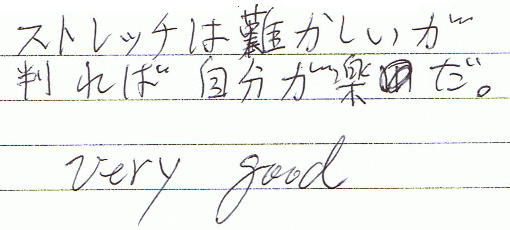 ストレッチは難かしいが
判れば自分が楽だ。
very good